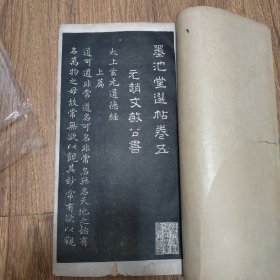 墨池堂選帖卷五
元趙文敏公書
太上玄元道德經
上篇
道可道非常道名可名非常名無名天地之始有
名萬物之母故常無欲以觀其妙常有欲以觀